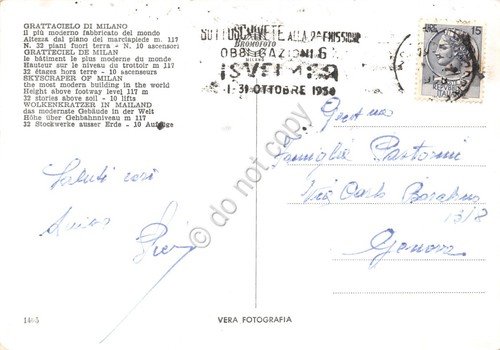 GRATTACIELO DI MILANO
il più moderno fabbricato del mondo
Altezza dal piano del marciapiede m. 117
N. 32 piani fuori terra - N. 10 ascensori
GRATTECIEL DE MILAN
le bâtiment le plus moderne du monde
Hauteur sur le niveau du trottoir m 117
32 étages hors terre - 10 ascenseurs
SKYSCRAPER OF MILAN
the most modern building in the world
Height above footway level 117 m
32 stories above soil - 10 lifts
WOLKENKRATZER IN MAILAND
das modernste Gebäude in der Welt
Höhe über Gehbahnniveau m 117
32 Stockwerke ausser Erde - 10 Aufzüge
SOTTOSCRIVETE ALLA 2ª EMISSIONE
BROMOFOTO
MILANO
OBBLIGAZIONI 6
ISVEIMER
1-31 OTTOBRE
15
do not copy
Saluti cari
Gent.ma
Famiglia Pastorini
Via Carlo
13/8
Genova
1465
VERA FOTOGRAFIA